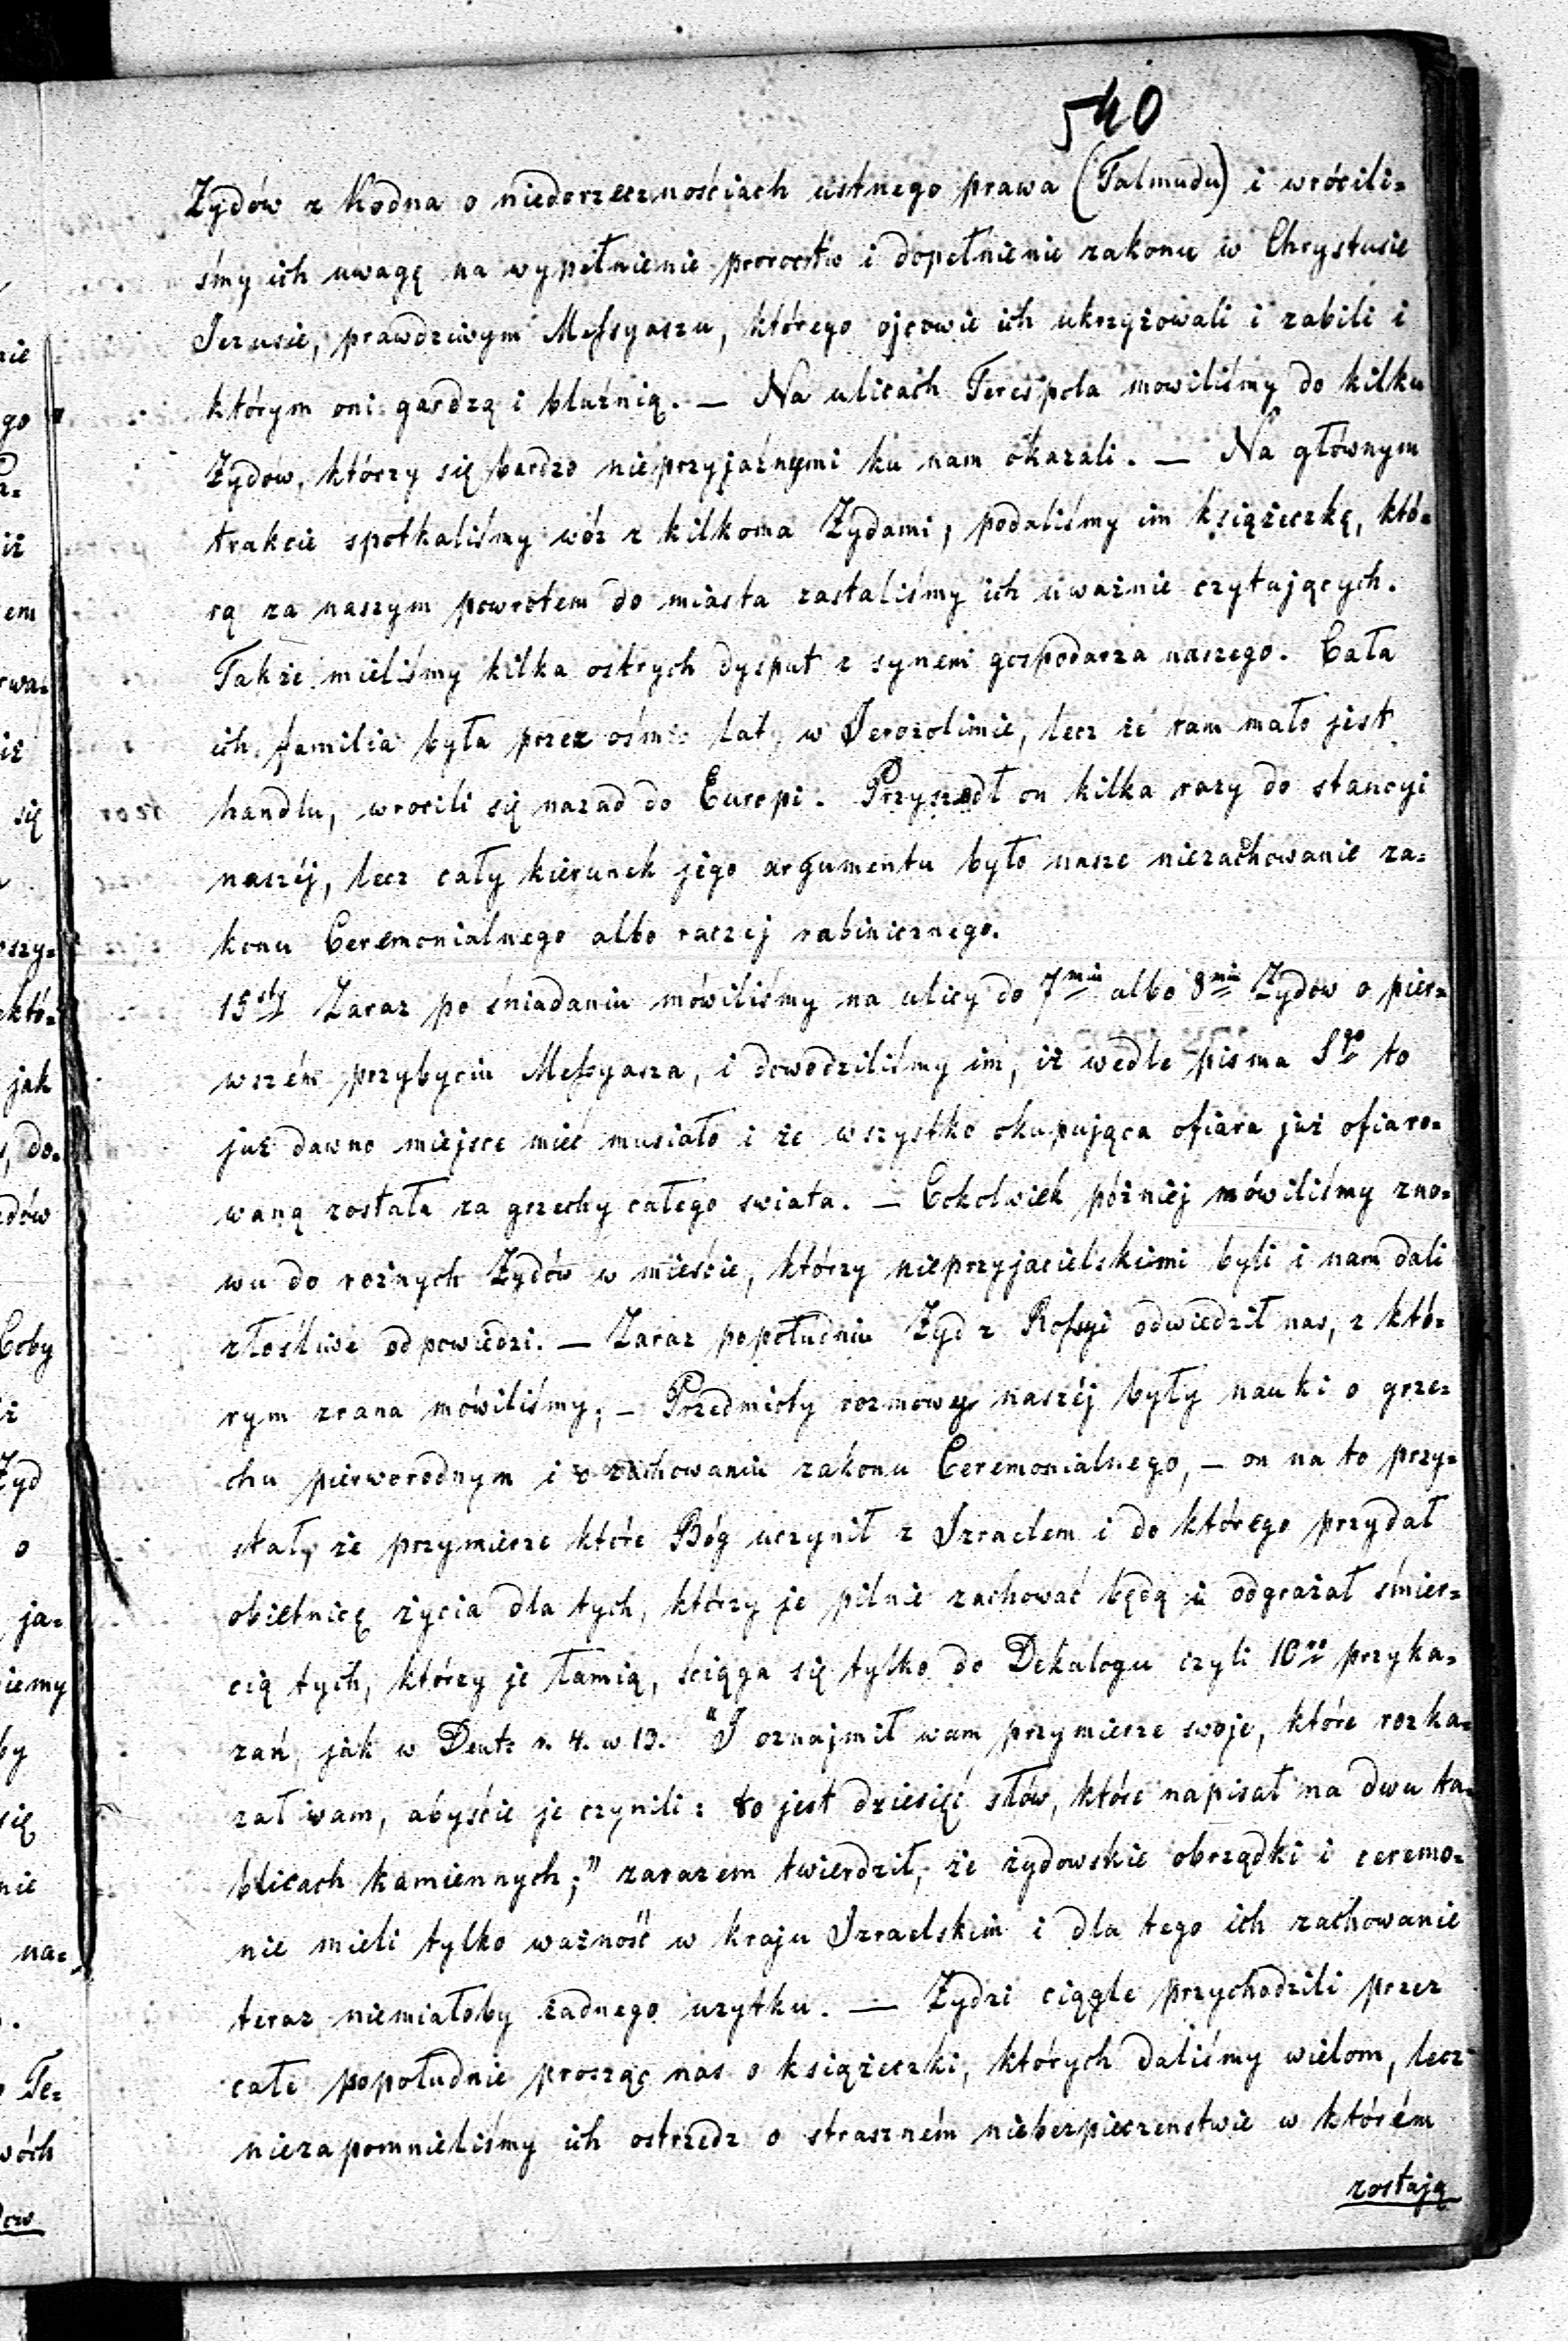 540
Żydów z Kodna o niedorzecznościach ustnego prawa (Talmudu) i wrócili=
śmy ich uwagę na wypełnienie proroctw i dopełnienie zakonu w Chrystusie
Jezusie, prawdziwym Messyaszu, którego ojcowie ich ukrzyżowali i zabili i
którym oni gardzą i bluźnią. — Na ulicach Terespola mowiliśmy do kilku
Żydów, którzy się bardzo nieprzyjaźnymi ku nam okazali. — Na głównym
trakcie spotkaliśmy wóz z kilkoma Żydami, podaliśmy im książeczkę, któ=
rą za naszym powrotem do miasta zastaliśmy ich uważnie czytujących.
Także mieliśmy kilka ostrych dysput z synem gospodarza naszego. Cała
ich familia była przez ośm lat w Jerozolimie, lecz że tam mało jest
handlu, wrocili się nazad do Europi. Przyszedł on kilka razy do stancyi
naszéj, lecz cały kierunek jego argumentu było nasze niezachowanie za=
konu Ceremonialnego albo raczej rabinicznego.
15sty Zaraz po śniadaniu mówiliśmy na ulicy do 7miu albo 8miu Żydów o pier=
wszém przybyciu Messyasza, i dowodziliśmy im, iż wedle pisma Sgo to
już dawno miejsce mieć musiało i że wszystko okupująca ofiara już ofiaro=
waną została za grzechy całego swiata. — Cokolwiek później mówiliśmy zno=
wu do rożnych Żydów w mieście, którzy nieprzyjacielskimi byli i nam dali
złośliwe odpowiedzi. — Zaraz popołudniu Żyd z Rossyi odwiedził nas, z któ=
rym zrana mówiliśmy; — Przedmioty rozmowy naszéj były nauki o grze=
chu pierworodnym i o zachowaniu zakonu Ceremonialnego, — on na to przy=
stał, że przymierze które Bóg uczynił z Izraelem i do którego przydał
obietnicę życia dla tych, którzy je pilnie zachować będą i odgrażał śmier=
cią tych, którzy je łamią, ściąga się tylko do Dekalogu czyli 10ro przyka=
zań, jak w Deutr r. 4. w 13. "I oznajmił wam przymierze swoje, które rozka=
zał wam, abyście je czynili: to jest dziesięć słów, które napisał na dwu ta=
blicach kamiennych;" zarazem twierdził, że żydowskie obrządki i ceremo=
nie mieli tylko ważność w kraju Izraelskim i dla tego ich zachowanie
teraz niemiałoby żadnego użytku. — Żydzi ciągle przychodzili przez
całe popołudnie prosząc nas o książeczki, których daliśmy wielom, lecz
niezapomnieliśmy ich ostrzedz o straszném niebezpieczenstwie w którém
zostają